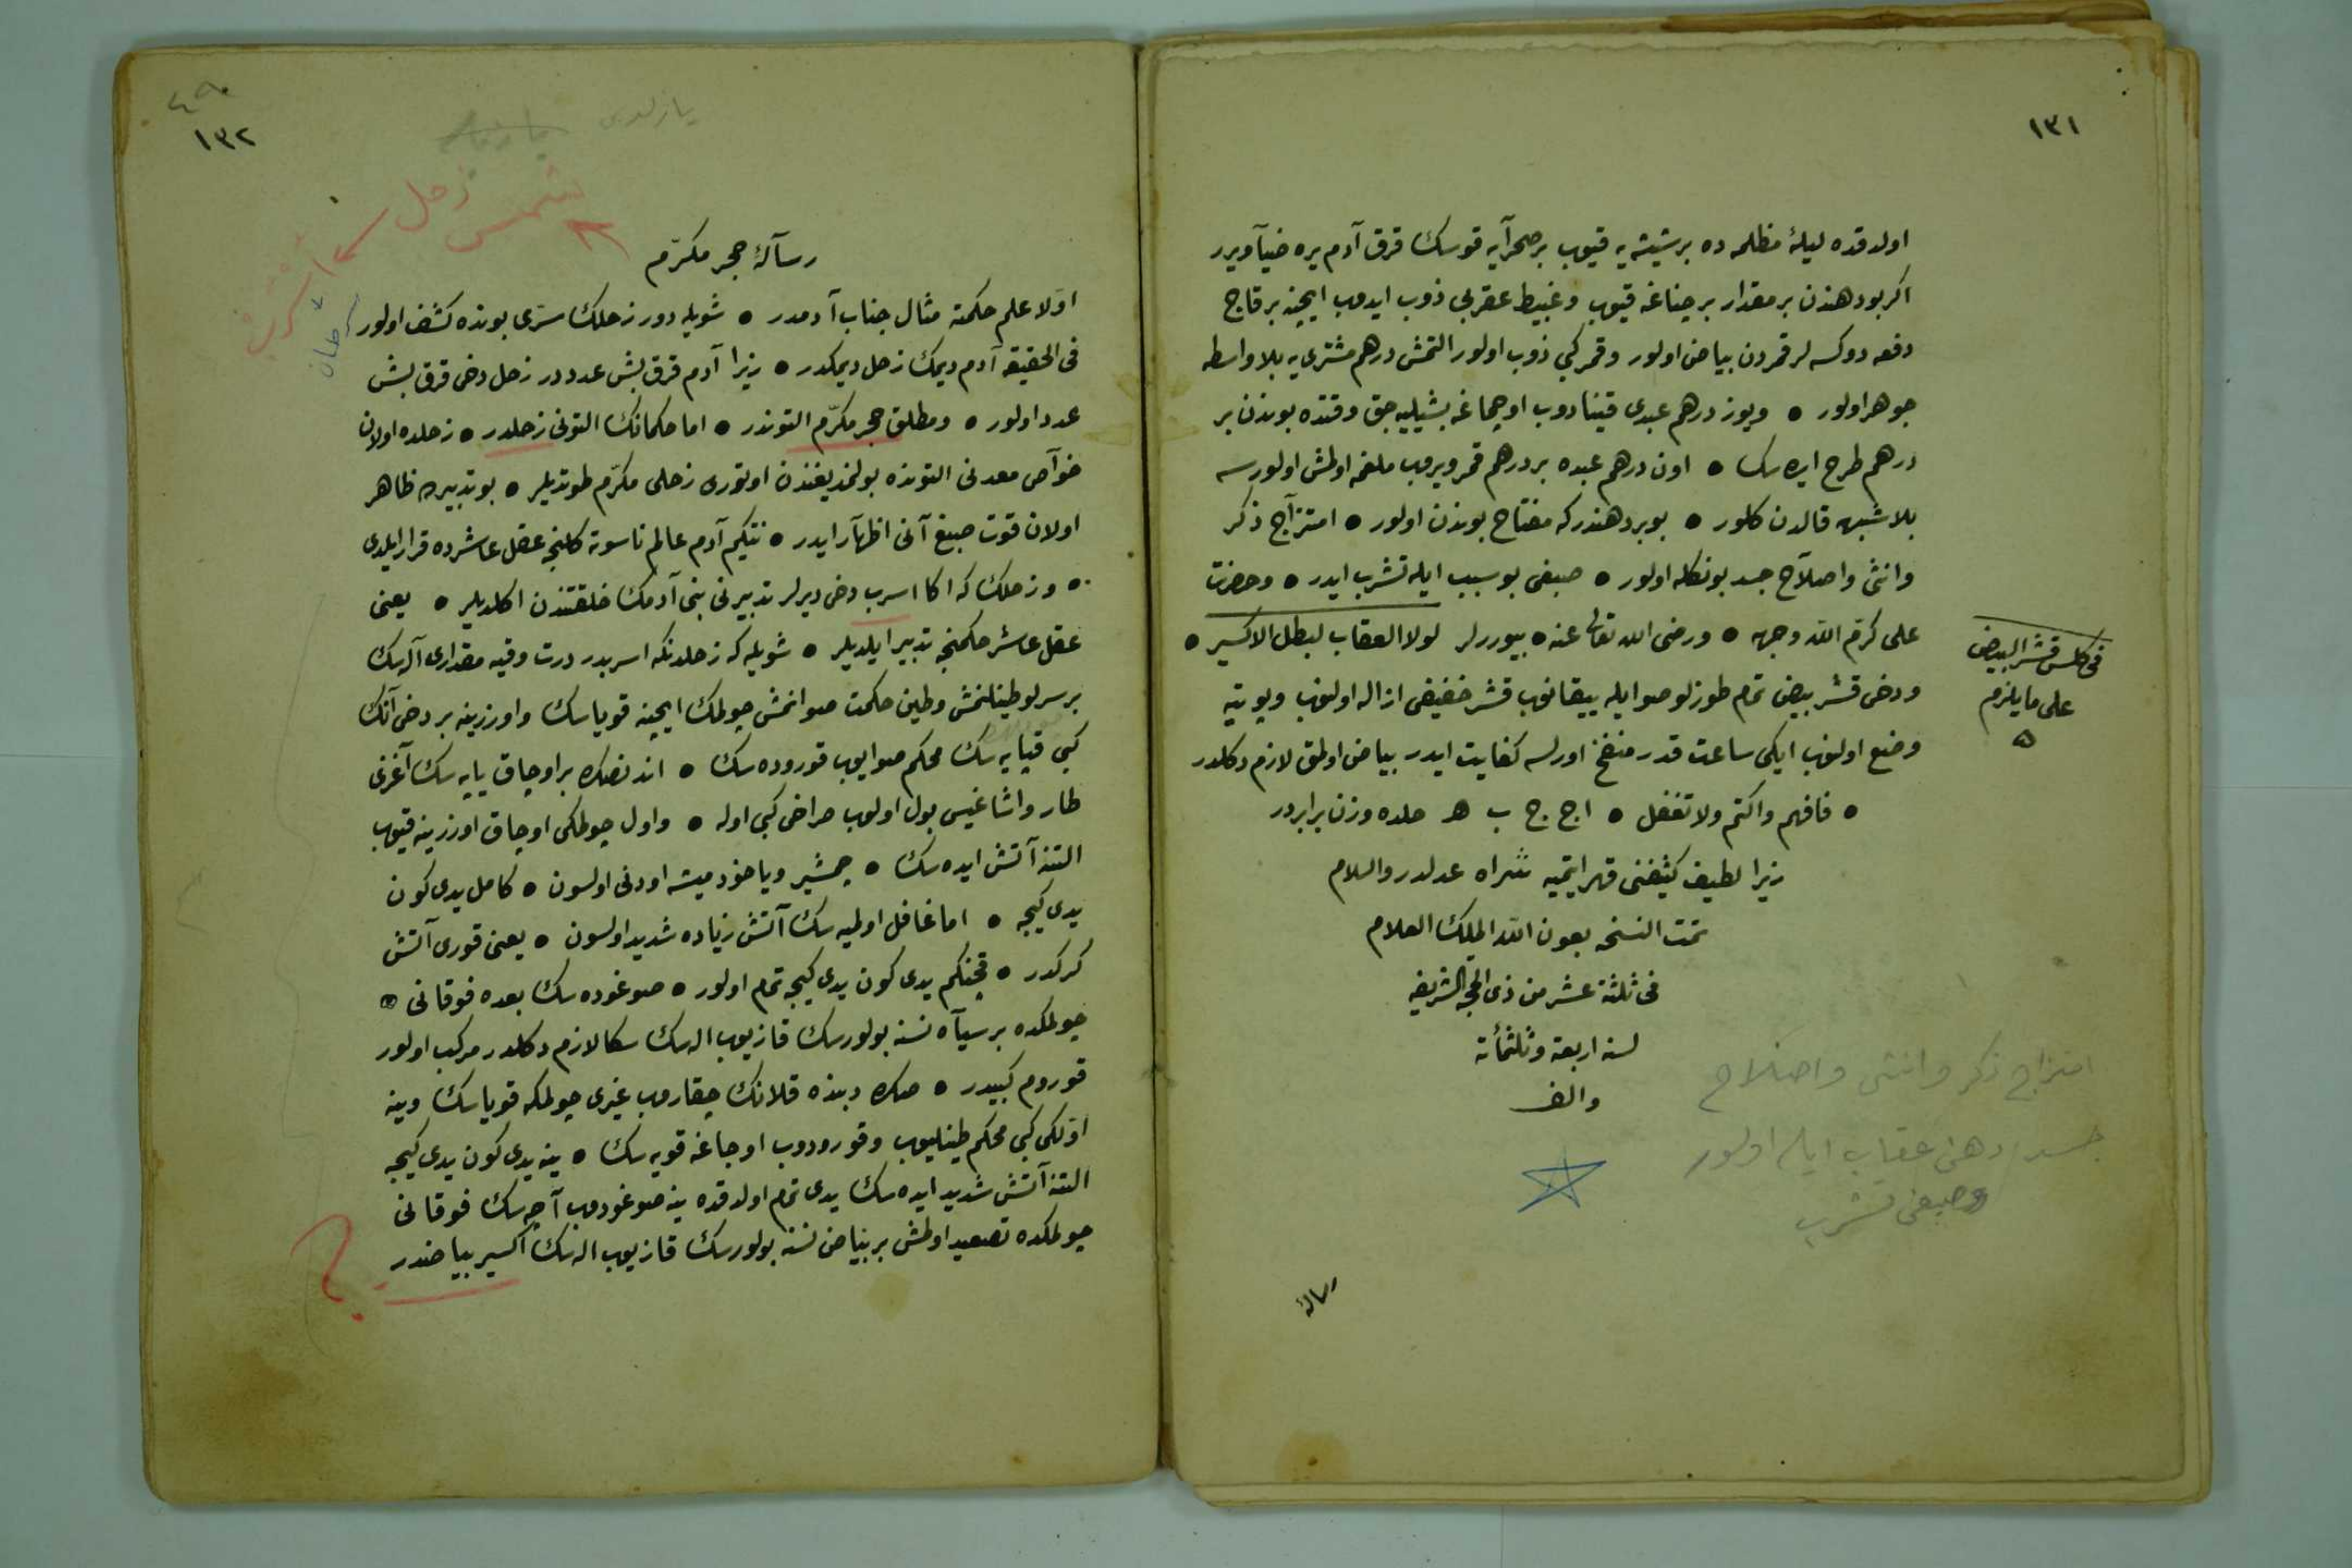 ١٣١
اولدقده ليلۀ مظلمه ده بر شيشه يه قيوب بر صحرآيه قوسك قرق آدم يره ضيآ ويرر
اكر بو دهندن بر مقدار بر چناغه قيوب وغبيط عقربى ذوب ايدوب ايچينه بر قاچ
دفعه دوكسه لر قمردن بياض اولور وقمر كبى ذوب اولور التمش درهم مشترى يه بلا واسطه
جوهر اولور • ويوز درهم عبدى قينادوب اوچماغه بشيليه جق وقتده بوندن بر
درهم طرح ايده سك • اون درهم عبده بر درهم قمر ويروب ملغمه اولمش اولورسه
بلا شبهه قالدن كلور • بو بر دهندركه مفتاح بوندن اولور • امتزآج ذكر
وانثى واصلآح جسد بونكله اولور • صبغى بو سبب ايله تشرب ايدر • وحضرت
على كرّم اللّه وجهه • ورضى الله تعالى عنه • بيوررلر لولا العقاب لبطل الاكسير •
فى كلس قشر البيض
على ما يلزم
ه
ودخى قشر بيض تمام طوزلو صو ايله بيقانوب قشر خفيفى ازاله اولنوب وبوتيه
وضع اولنوب ايكى ساعت قدر منفخ اورلسه كفايت ايدر بياض اولمق لازم دكلدر
• فافهم واكتم ولا تغفل • اج ج ب هـ حلده وزن برابردر
زيرا لطيف كثيفنى قهر ايتميه شراه عدلدر والسلام
تمت النسخه بعون اللّه الملك العلام
فى ثلثة عشر من ذى الحجه الشريفه
لسنه اربعة وثلثمأئة
والف
امتزاج ذكر وانثى واصلاح
جسد دهن عقاب ايله اولور
وصبغى تشرب
رساله
١٣٢
يازلدى
شمس زحل
اسرب
سرطان
رسآلۀ حجر مكرّم
اوّلا علم حكمته مثال جناب آدمدر • شويله دور زحلك سرّى بونده كشف اولور
فى الحقيقه آدم ديمك زحل ديمكدر • زيرا آدم قرق بش عدددر زحل دخى قرق بش
عدد اولور • ومطلق حجر مكرّم التوندر • اما حكمانك التونى زحلدر • زحلده اولان
خوآص معدنى التونده بولنمديغندن اوتورى زحلى مكرّم طوتديلر • بو تدبيره ظاهر
اولان قوت صبغ آنى اظهآر ايدر • نتكيم آدم عالم ناسوته كلنجه عقل عاشرده قرار ايلدى
• وزحلك كه اكا اسرب دخى ديرلر تدبيرنى بنى آدمك خلقتندن اكلديلر • يعنى
عقل عاشر حكمنجه تدبير ايلديلر • شويله كه زحلدنكه اسربدر درت وقيه مقدارى آله سك
بر سرلو طينلنمش وطين حكمت صوانمش چولمك ايچينه قوياسك واوزرينه بر دخى آنك
كبى قپايه سك محكم صوايوب قوروده سك • اندنصكره بر اوجاق ياپه سك آغزى
طار واشاغيسى بول اولوب حراضى كبى اوله • واول چولمكى اوجاق اوزرينه قيوب
التنه آتش ايده سك • چمشير وياخود ميشه اودنى اولسون • كامل يدى كون
يدى كيجه • اما غافل اولميه سك آتش زياده شديد اولسون • يعنى قورى آتش
كركدر • قچنكم يدى كون يدى كيجه تمام اولور • صوغوده سك بعده فوقانى
چولمكده بر سيآه نسنه بولورسك قازيوب اله سك سكا لازم دكلدر مركب اولور
قوروم كبيدر • صكره دبنده قلانك چقاروب غيرى چولمكه قوياسك وينه
اوّلكى كبى محكم طينليوب وقورودوب اوجاغه قويه سك • ينه يدى كون يدى كيجه
التنه آتش شديد ايده سك يدى تمام اولدقده ينه صوغودوب آچه سك فوقانى
چولمكده تصعيد اولمش بر بياض نسنه بولورسك قازيوب اله سك اكسير بياضدر